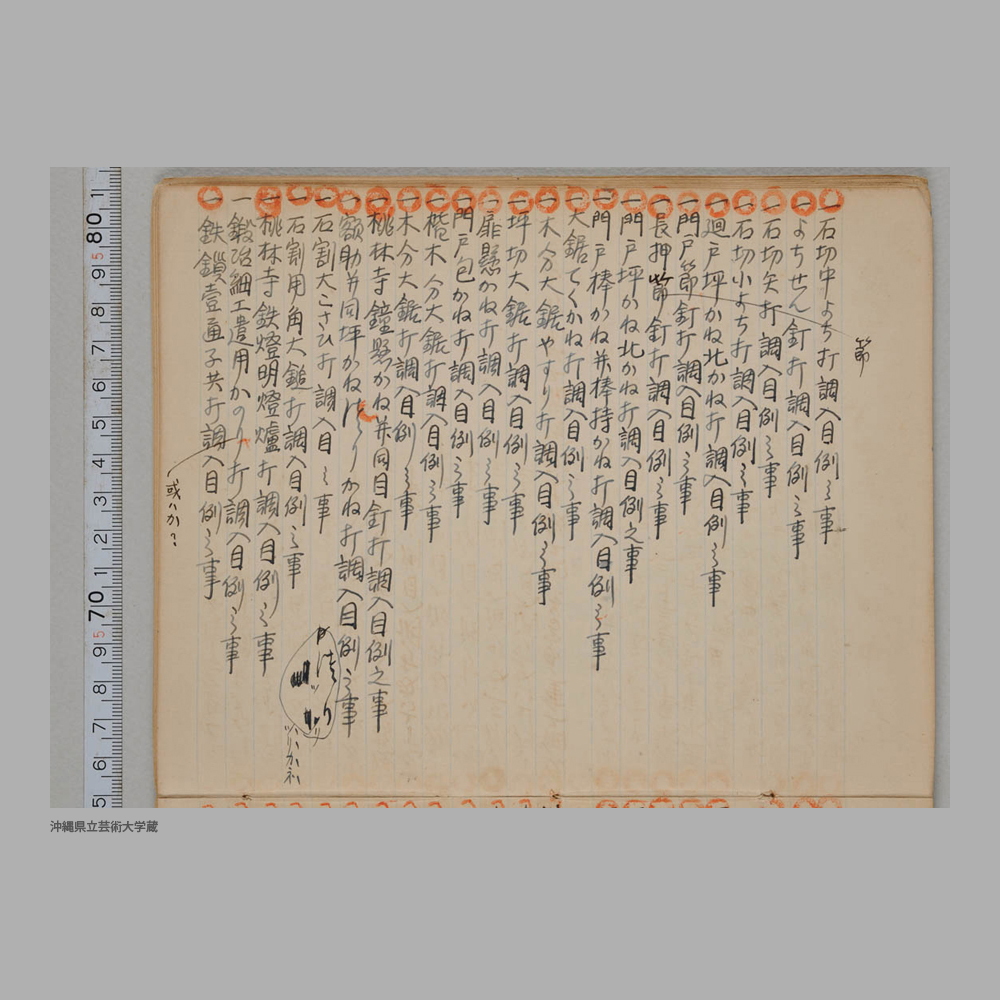 一石切中よち打調入目例之事
一よちせん釘打調入目例之事
一石切矢打調入目例之事
一石切小よち打調入目例之事
一廻戸坪かね北かね打調入目例之事
一門戸節釘打調入目例之事
一長押節釘打調入目例之事
一門戸坪かね北かね打調入目例之事
一門戸棒かね并棒持かね打調入目例之事
一大鋸てくかね打調入目例之事
一木分大鋸やすり打調入目例之事
一坪切大鋸打調入目例之事
一扉懸かね打調入目例之事
一門戸包かね打調入目例之事
一樫木分大鋸打調入目例之事
一木分大鋸打調入目例之事
一桃林寺鐘懸かね并同目釘打調入目例之事
一額助并同坪かね法りかね打調入目例之事
一石割大こさひ打調入目之事
一石割用角大鎚打調入目例之事
一桃林寺鉄燈明燈爐打調入目例之事
一鍛冶細工遣用かのり打調入目例之事
一鉄鎖壹通子共打調入目例之事
節
或ハか?
か法り
ツリカネハ
沖縄県立芸術大学蔵